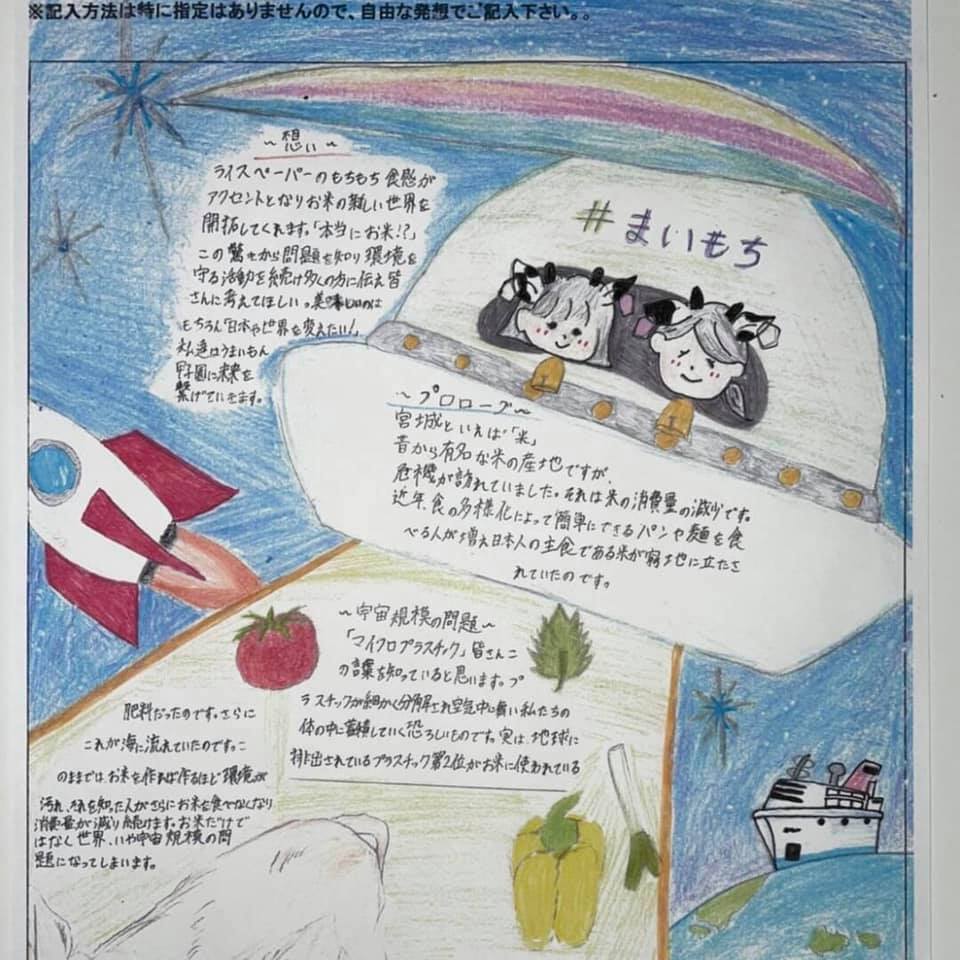 ※記入方法は特に指定はありませんので、自由な発想でご記入下さい。。
～想い～
ライスペーパーのもちもち食感が
アクセントとなりお米の難しい世界を
開拓してくれます。「本当にお米!?」
この驚きから問題を知り環境を
守る活動を続け多くの方に伝え皆
さんに考えてほしい。美味しいのは
もちろん「日本や世界を変えたい！」
私達はうまいもん
甲子園に未来を
繋げていきます。
#まいもち
～プロローグ～
宮城といえば「米」
昔から有名な米の産地ですが、
危機が訪れていました。それは米の消費量の減少です。
近年、食の多様化によって簡単にできるパンや麺を食
べる人が増え日本人の主食である米が窮地に立たさ
れていたのです。
～宇宙規模の問題～
「マイクロプラスチック」皆さんこ
の言葉を知っていると思います。プ
ラスチックが細かく分解され空気中に舞い私たちの
体の中に蓄積していく恐ろしいものです。実は、地球に
排出されているプラスチック第2位がお米に使われている
肥料だったのです。さらに
これが海に流れていたのです。こ
のままでは、お米を作れば作るほど環境が
汚れ、それを知った人がさらにお米を食べなくなり
消費量が減り続けます。お米だけで
はなく世界、いや宇宙規模の問
題になってしまいます。